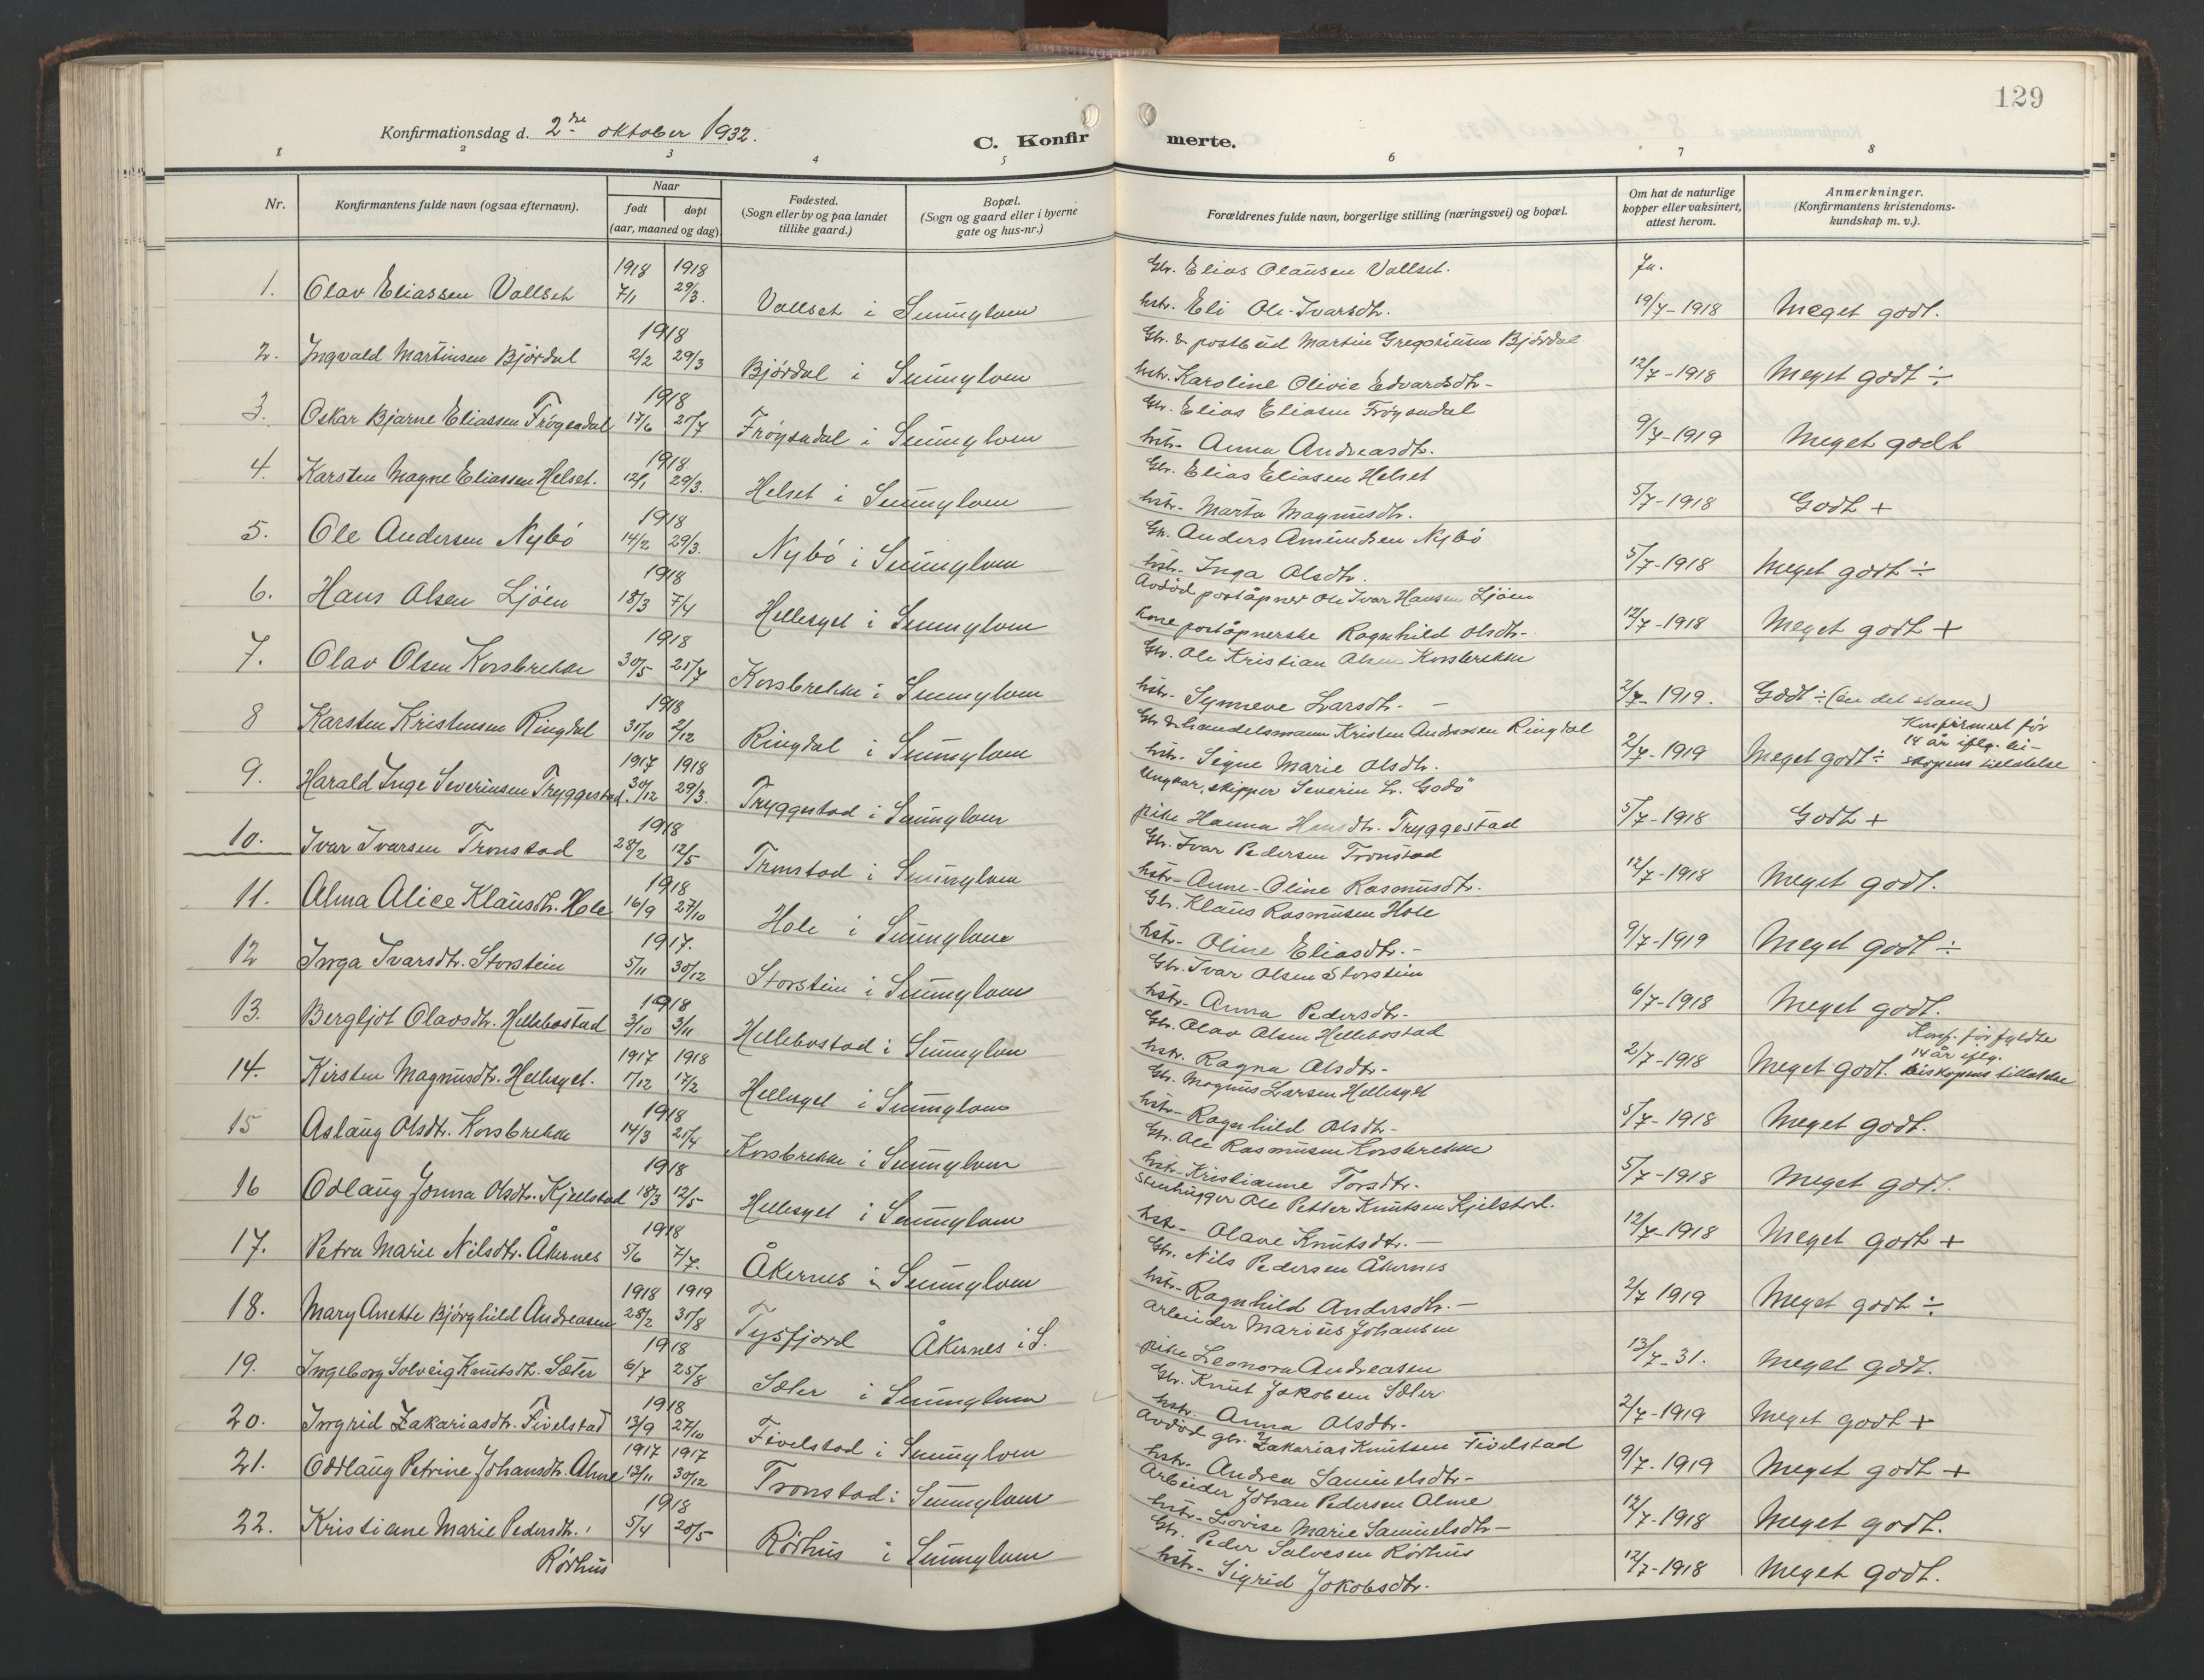 129
Konfirmationsdag d. 2dre oktober 1932.
C. Konfirmerte.
1 2 3 4 5 6 7 8
Nr.
Konfirmantens fulde navn (ogsaa efternavn).
Naar
født
døpt
(aar, maaned og dag)
Fødested.
(Sogn eller by og paa landet
tillike gaard.)
Bopæl.
(Sogn og gaard eller i byerne
gate og hus-nr.)
Forældrenes fulde navn, borgerlige stilling (næringsvei) og bopæl.
Om hat de naturlige
kopper eller vaksinert,
attest herom.
Anmerkninger.
(Konfirmantens kristendoms-
kundskap m. v.).
1918 1918 Gbr. Elias Olausen Vollset. Ja.
1. Olav Eliassen Vollset 7/1 29/3. Vollset i Sunnylven hstr. Eli Ole-Ivarsdtr. 19/7-1918 Meget godt.
1918 Gbr. & postbud Martin Gregoriusen Björdal
2. Ingvald Martinsen Björdal 2/2 29/3 Björdal i Sunnylven hstr. Karoline Olivie Edvardsdtr- 12/7-1918 Meget godt ÷
1918 Gbr. Elias Eliasen Fröysadal
3. Oskar Bjarne Eliassen Fröysadal 17/6 21/7 Fröysadal i Sunnylven hstr- Anna Andreasdtr. 9/7-1919 Meget godt
1918. Gbr. Elias Eliasen Helset
4. Karsten Magne Eliassen Helset. 12/1 29/3. Helset i Sunnylven hstr- Marta Magnusdtr. 5/7-1918 Godt +
1918 Gbr. Anders Amundsen Nybö
5. Ole Andersen Nybö 14/2 29/3. Nybö i Sunnylven hstr- Inga Olsdtr. 5/7-1918 Meget godt ÷
1918 Avdöd poståpner Ole Ivar Hansen Ljöen
6. Hans Olsen Ljöen 18/3 7/4 Hellesylt i Sunnylven kone poståpnerske Ragnhild Olsdtr- 12/7-1918 Meget godt +
1918 Gbr. Ole Kristian Olsen Korsbrekke
7. Olav Olsen Korsbrekke 30/5 21/7 Korsbrekke i Sunnylven hstr- Synneve Larsdtr- 2/7-1919. Godt ÷
1918 Gbr & handelsmann Kristen Andresen Ringdal Konfirmert för
14 år iflg. bi-
8 Karsten Kristensen Ringdal 31/10 2/12 Ringdal i Sunnylven hstr. Signe Marie Olsdtr. 2/7-1919 Meget godt ÷ skopens tillatelse
1917 1918 Ungkar, skipper Severin L. Godö
9. Harald Inge Severinsen Tryggestad. 30/12 29/3. Tryggestad i Sunnylven pike Hanna Hansdtr. Tryggestad 5/7-1918 Godt +
1918 Gbr. Ivar Pedersen Tronstad
10. Ivar Ivarsen Tronstad 28/2 12/5 Tronstad i Sunnylven hstr- Anne-Oline Rasmusdtr. 12/7-1918 Meget godt.
1918 Gbr. Klaus Rasmusen Hole
11. Alma Alice Klausdtr. Hole 16/9 27/10 Hole i Sunnylven hstr- Oline Eliasdtr.- 9/7-1919 Meget godt ÷
1917. Gbr. Ivar Olsen Storstein
12 Inga Ivarsdtr. Storstein 5/11 30/12 Storstein i Sunnylven hstr- Anna Pedersdtr- 6/7-1918 Meget godt.
1918 Gbr. Olav Olsen Hellebostad Konf. för fyldte
14 år iflg.
13. Bergljot Olavsdtr. Hellebostad 3/10 3/11 Hellebostad i Sunnylven hstr. Ragna Olsdtr- 2/7-1918 Meget godt. biskopens tillatelse
1917 1918 Gbr. Magnus Larsen Hellesylt
14. Kirsten Magnusdtr. Hellesylt. 1/12 17/2 Hellesylt i Sunnylven hstr- Ragnhild Olsdtr- 5/7-1918 Meget godt.
1918 Gbr. Ole Rasmusen Korsbrekke
15 Aslaug Olsdtr. Korsbrekke 14/3 21/4 Korsbrekke i Sunnylven hstr- Kristianne Torsdtr. 5/7-1918 Meget godt.
1918 Stenhugger Ole Petter Knutsen Kjelstad.
16 Odlaug Jonna Olsdtr. Kjellstad 18/3 12/5 Hellesylt i Sunnylven hstr- Olave Knutsdtr.- 12/7-1918 Meget godt +
1918 Gbr. Nils Pedersen Åkernes
17. Petra Marie Nilsdtr. Åkernes 5/6 7/7. Åkernes i Sunnylven hstr- Ragnhild Andersdtr.- 2/7 1919 Meget godt ÷
1918 1919 arbeider Marius Johansen
18. Mary Anette Björghild Andreasen 28/2 31/8 Tysfjord Åkernes i S. pike Leonora Andreasen 13/7-31. Meget godt.
1918 Gbr. Knut Jakobsen Sæter
19. Ingeborg Solveig Knutsdtr. Sæter 6/7 25/8 Sæter i Sunnylven hstr. Anna Olsdtr- 2/7-1919 Meget godt +
1918 Avdöd gbr. Zakarias Knutsen Fivelstad
20. Ingrid Zakariasdtr. Fivelstad 13/9 27/10 Fivelstad i Sunnylven hstr. Andrea Samuelsdtr- 9/7-1919 Meget godt +
1917 1917 Arbeider Johan Pedersen Alme
21. Oddlaug Petrine Johansdtr. Alme 13/11 30/12 Tronstad i Sunnylven hstr- Lovise Marie Samuelsdtr- 12/7-1918 Meget godt.
1918 Gbr. Peder Salvesen Rödhus
22. Kristiane Marie Pedersdtr. 5/4 20/5 Rödhus i Sunnylven hstr- Sigrid Jakobsdtr. 12/7-1918 Meget godt.
Rödhus